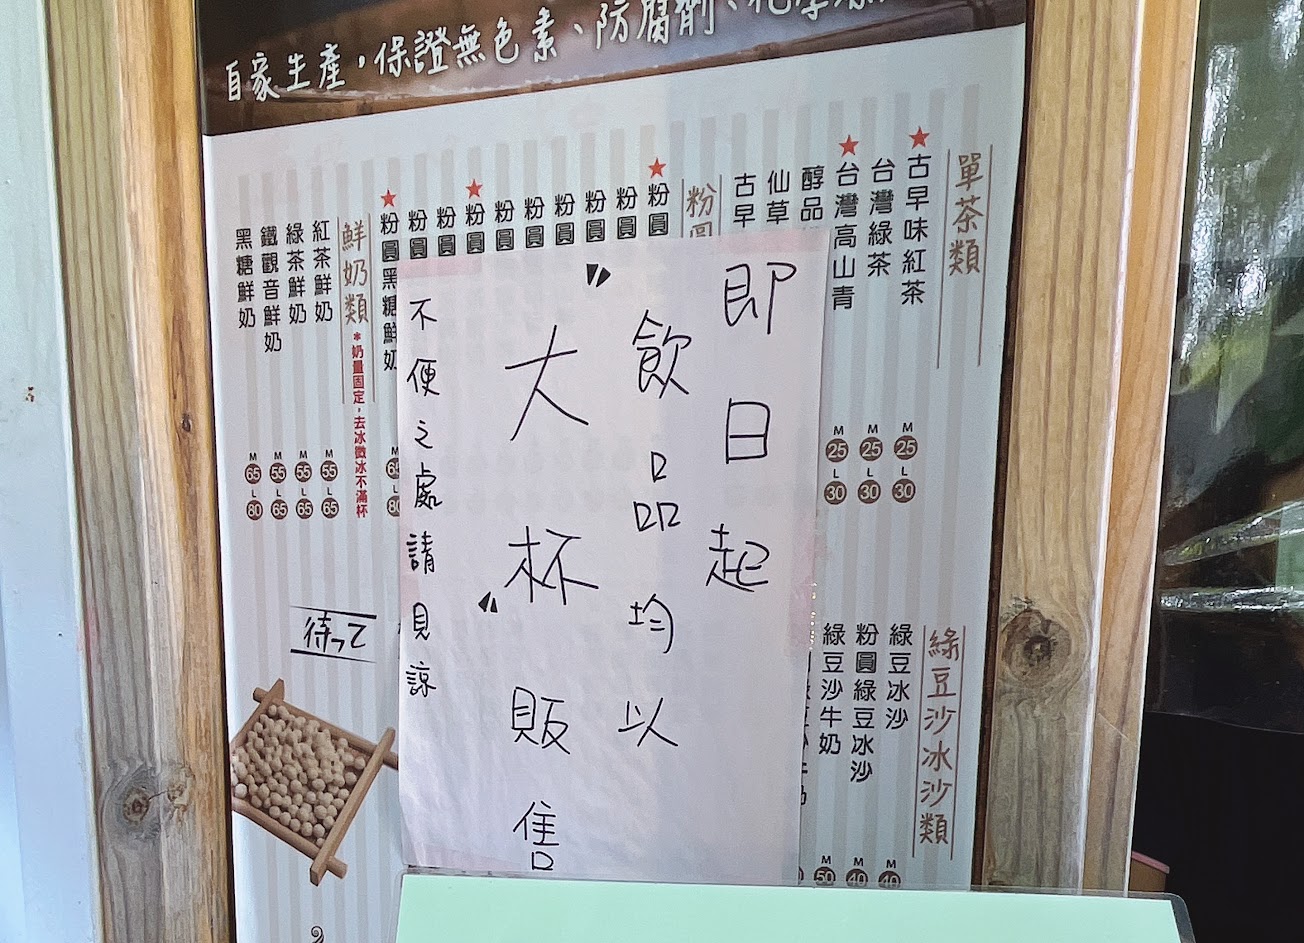 自家生產，保證無色素、防腐劑、化學
單茶類
★古早味紅茶 M 25 L 30
台灣綠茶 M 25 L 30
★台灣高山青 M 25 L 30
醇品
仙草
古早
綠豆沙冰沙類
綠豆冰沙 M 40
粉圓綠豆冰沙 M 40
綠豆沙牛奶 M 50
粉圓
★粉圓
粉圓
粉圓
粉圓
粉圓
粉圓
★粉圓
粉圓
粉圓
★粉圓黑糖鮮奶 M L 80
鮮奶類
*奶量固定，去冰微冰不滿杯
紅茶鮮奶 M 55 L 65
綠茶鮮奶 M 55 L 65
鐵觀音鮮奶 M 55 L 65
黑糖鮮奶 M 65 L 80
待って
即日起
飲品均以
"大杯"販售
不便之處請見諒